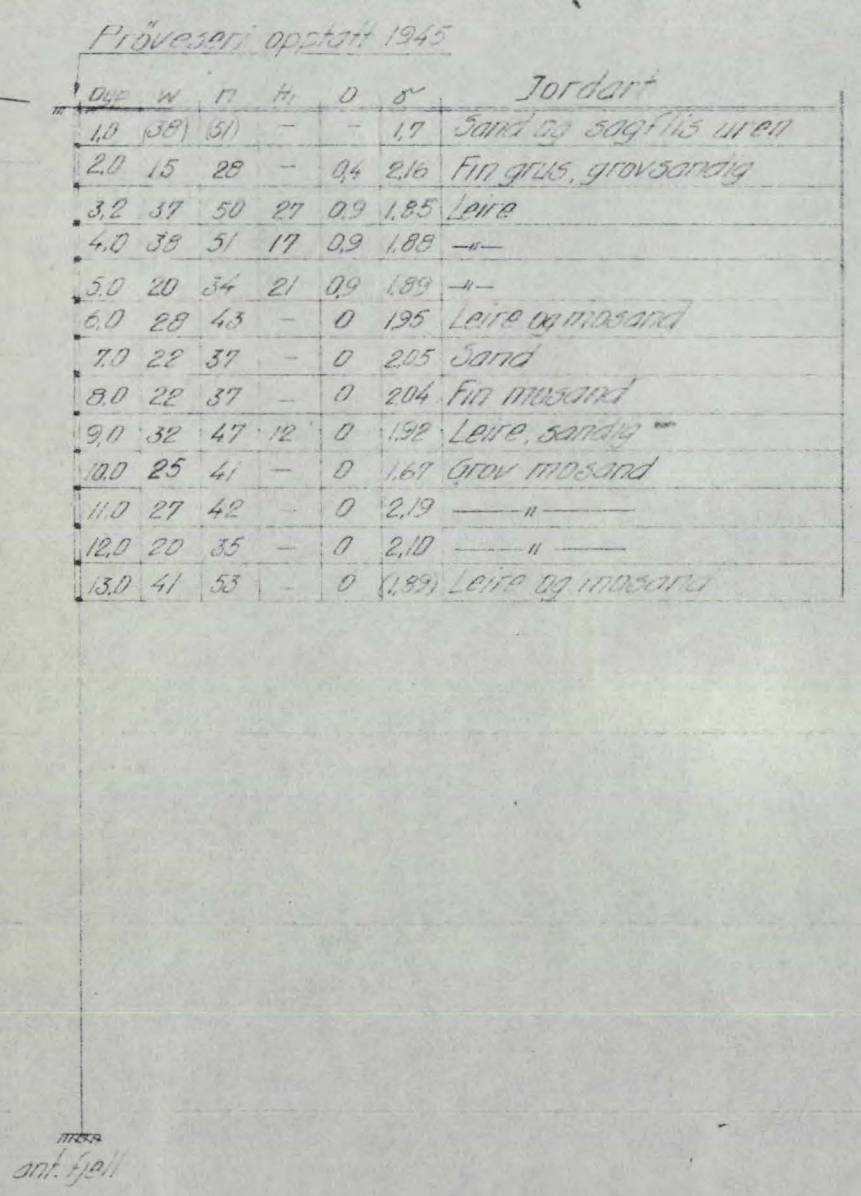 Pröveseri opptatt 1945
Dyp W n H₁ O γ Jordart
1,0 (38) (51) — — 1,7 Sand og sagflis uren
2,0 15 28 — 0,4 2,16 Fin grus, grovsandig
3,2 37 50 27 0,9 1,85 Leire
4,0 38 51 17 0,9 1,88 —〃—
5,0 20 34 21 0,9 1,89 —〃—
6,0 28 43 — 0 1,95 Leire og mosand
7,0 22 37 — 0 2,05 Sand
8,0 22 37 — 0 2,04 Fin mosand
9,0 32 47 12 0 1,92 Leire, sandig
10,0 25 41 — 0 1,67 Grov mosand
11,0 27 42 — 0 2,19 —〃—
12,0 20 35 — 0 2,10 —〃—
13,0 41 53 — 0 (1,89) Leire og mosand
ant. fjell